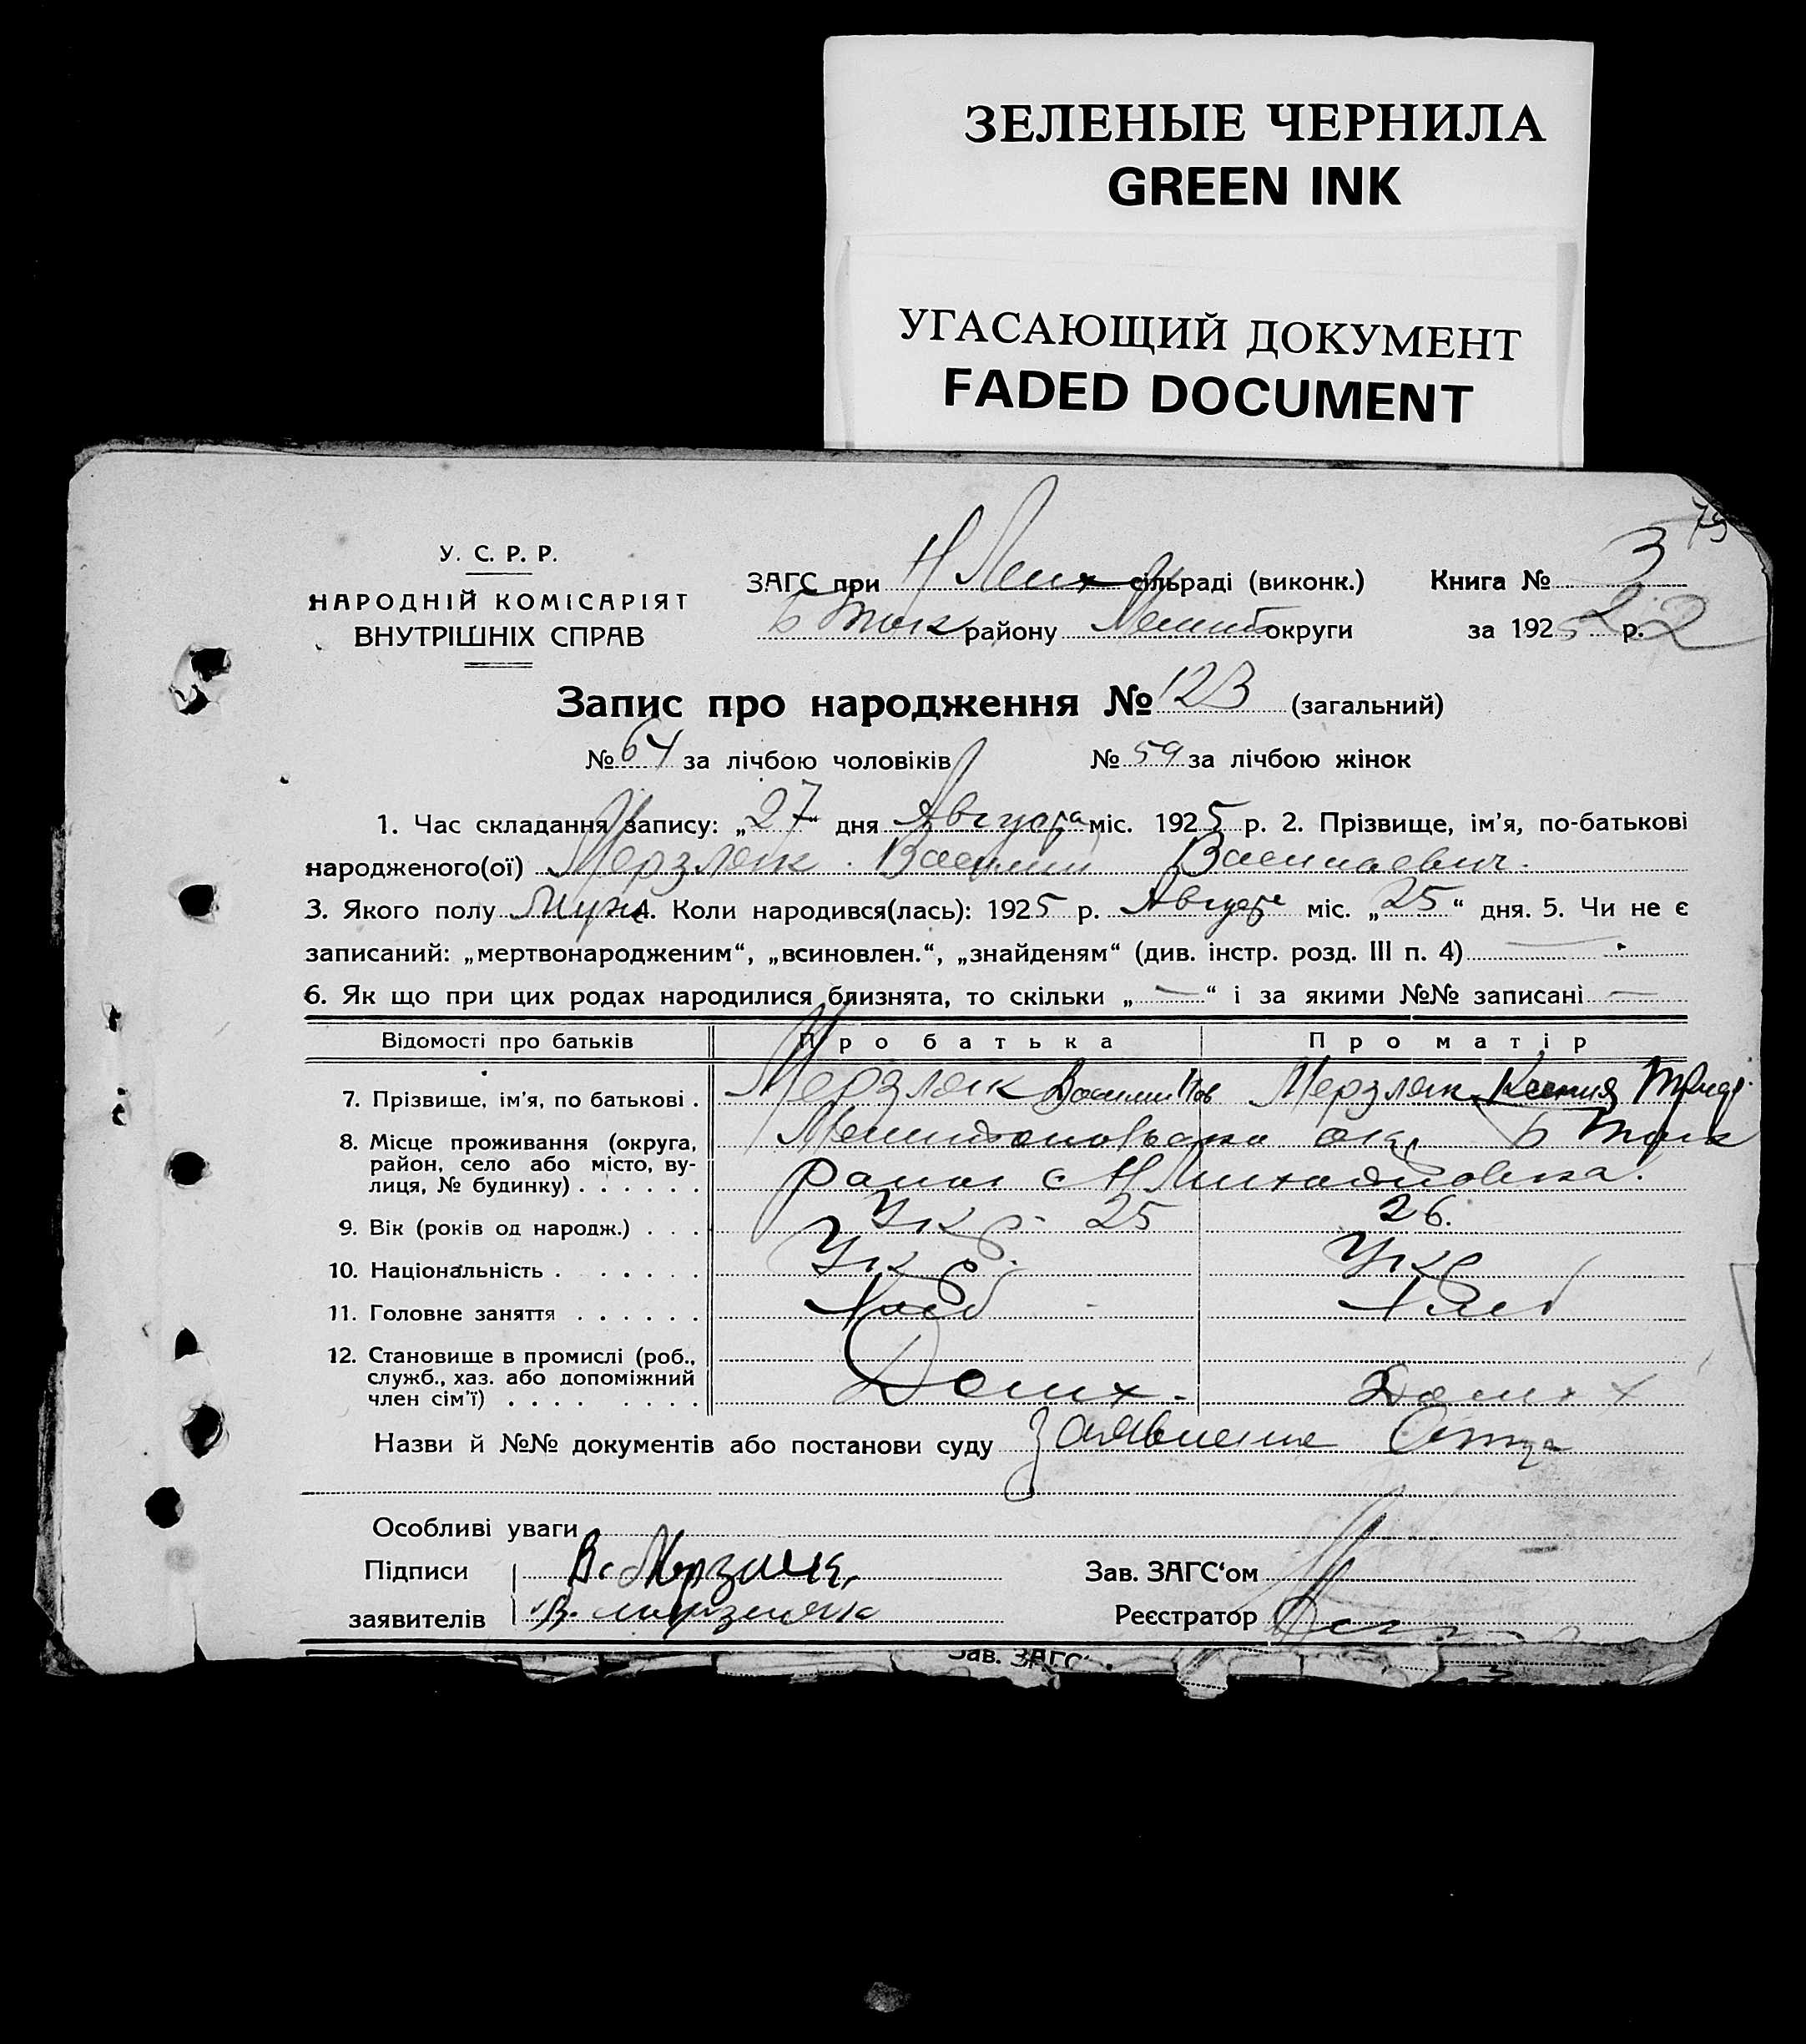 ЗЕЛЕНЫЕ ЧЕРНИЛА
GREEN INK
УГАСАЮЩИЙ ДОКУМЕНТ
FADED DOCUMENT
75
У. С. Р. Р.
НАРОДНІЙ КОМІСАРІЯТ
ВНУТРІШНІХ СПРАВ
ЗАГС при Н Мих сільраді (виконк.) Книга № 3
Б Ток району Мелит округи за 1925 р. 22
Запис про народження № 123 (загальний)
№ 64 за лічбою чоловіків № 59 за лічбою жінок
1. Час складання запису: „27“ дня Августа міс. 1925 р. 2. Прізвище, ім'я, по-батькові
народженого(ої) Мерзляк Василий Васильевич.
3. Якого полу Муж 4. Коли народився(лась): 1925 р. Августа міс. „25“ дня. 5. Чи не є
записаний: „мертвонародженим“, „всиновлен.“, „знайденям“ (див. інстр. розд. III п. 4) —
6. Як що при цих родах народилися близнята, то скільки „—“ і за якими №№ записані —
Відомості про батьків Про батька Про матір
7. Прізвище, ім'я, по батькові . Мерзляк Василий Мерзляк Ксения
8. Місце проживання (округа, Мелитопольская окр Б Ток
район, село або місто, ву-
лиця, № будинку) . . . . . . район с Н Михайловка.
9. Вік (років од народж.) . . . Укр. 25 26.
10. Національність . . . . . . Укр. Укр
11. Головне заняття . . . . . . Хлеб Хлеб
12. Становище в промислі (роб.,
служб., хаз. або допоміжний
член сім'ї) . . . . . . . . Домх. Домх
Назви й №№ документів або постанови суду Заявление Отца
Особливі уваги
Підписи В. Мерзляк Зав. ЗАГС'ом
заявителів В. Мерзляк Реєстратор
Зав. ЗАГС'